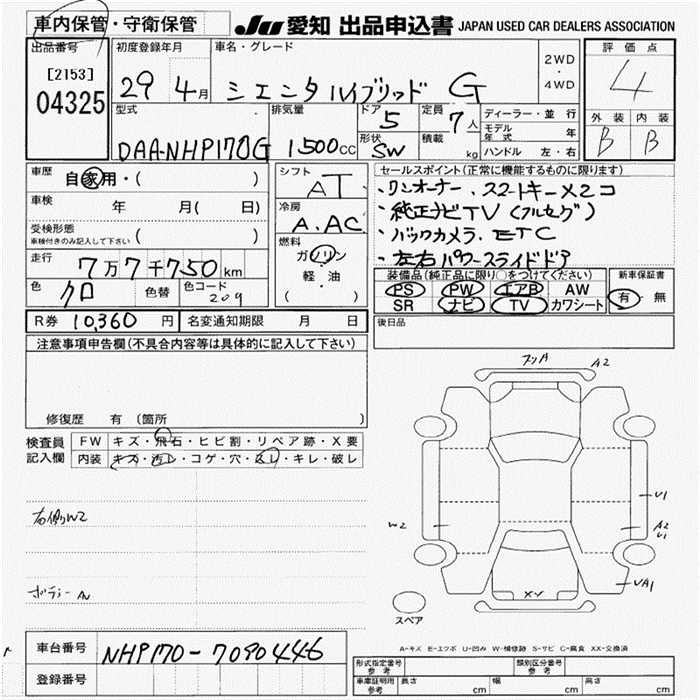 車内保管・守衛保管
JU 愛知 出品申込書 JAPAN USED CAR DEALERS ASSOCIATION
出品番号 初度登録年月 車名・グレード 評価点
[2153]
04325
29 4月 シエンタ ハイブリッド G 2WD・4WD 4
型式 排気量 ドア 定員 ディーラー・並行 外装 内装
DAA-NHP170G 1500cc 5 7人 モデル年式 年 B B
形状 積載 ハンドル 左・右
SW kg
車歴 自家用・( )
シフト AT
セールスポイント(正常に機能するものに限ります)
・ワンオーナー、スマートキーメ2コ
・純正ナビTV(フルセグ)
・バックカメラ、ETC
・左右パワースライドドア
車検 年 月( 日)
冷房 A.AC
受検形態 車検付きのみ記入して下さい ( )
燃料 ガソリン 軽・油 ( )
走行 7万7千750km
色 クロ 色替 色コード 209
装備品(純正品に限り○をつけてください) 新車保証書
PS PW エアB AW 有・無
SR ナビ TV カワシート
R券 10,360円 名変通知期限 月 日
後日品
注意事項申告欄(不具合内容等は具体的に記入して下さい)
修復歴 有 (箇所 )
検査員記入欄
FW キズ・飛石・ヒビ割・リペア跡・X要
内装 キズ・汚レ・コゲ・穴・スレ・キレ・破レ
右側W2
ボデーA
A2
U1
W2
A2
U1
UA1
XV
スペア
A-キズ E-エクボ U-凹み W-補修跡 S-サビ C-腐食 XX-交換済
車台番号 NHP170-7090446
登録番号
形式指定番号 参考 類別区分番号 参考
車庫証明用 参考 長さ cm 幅 cm 高さ cm